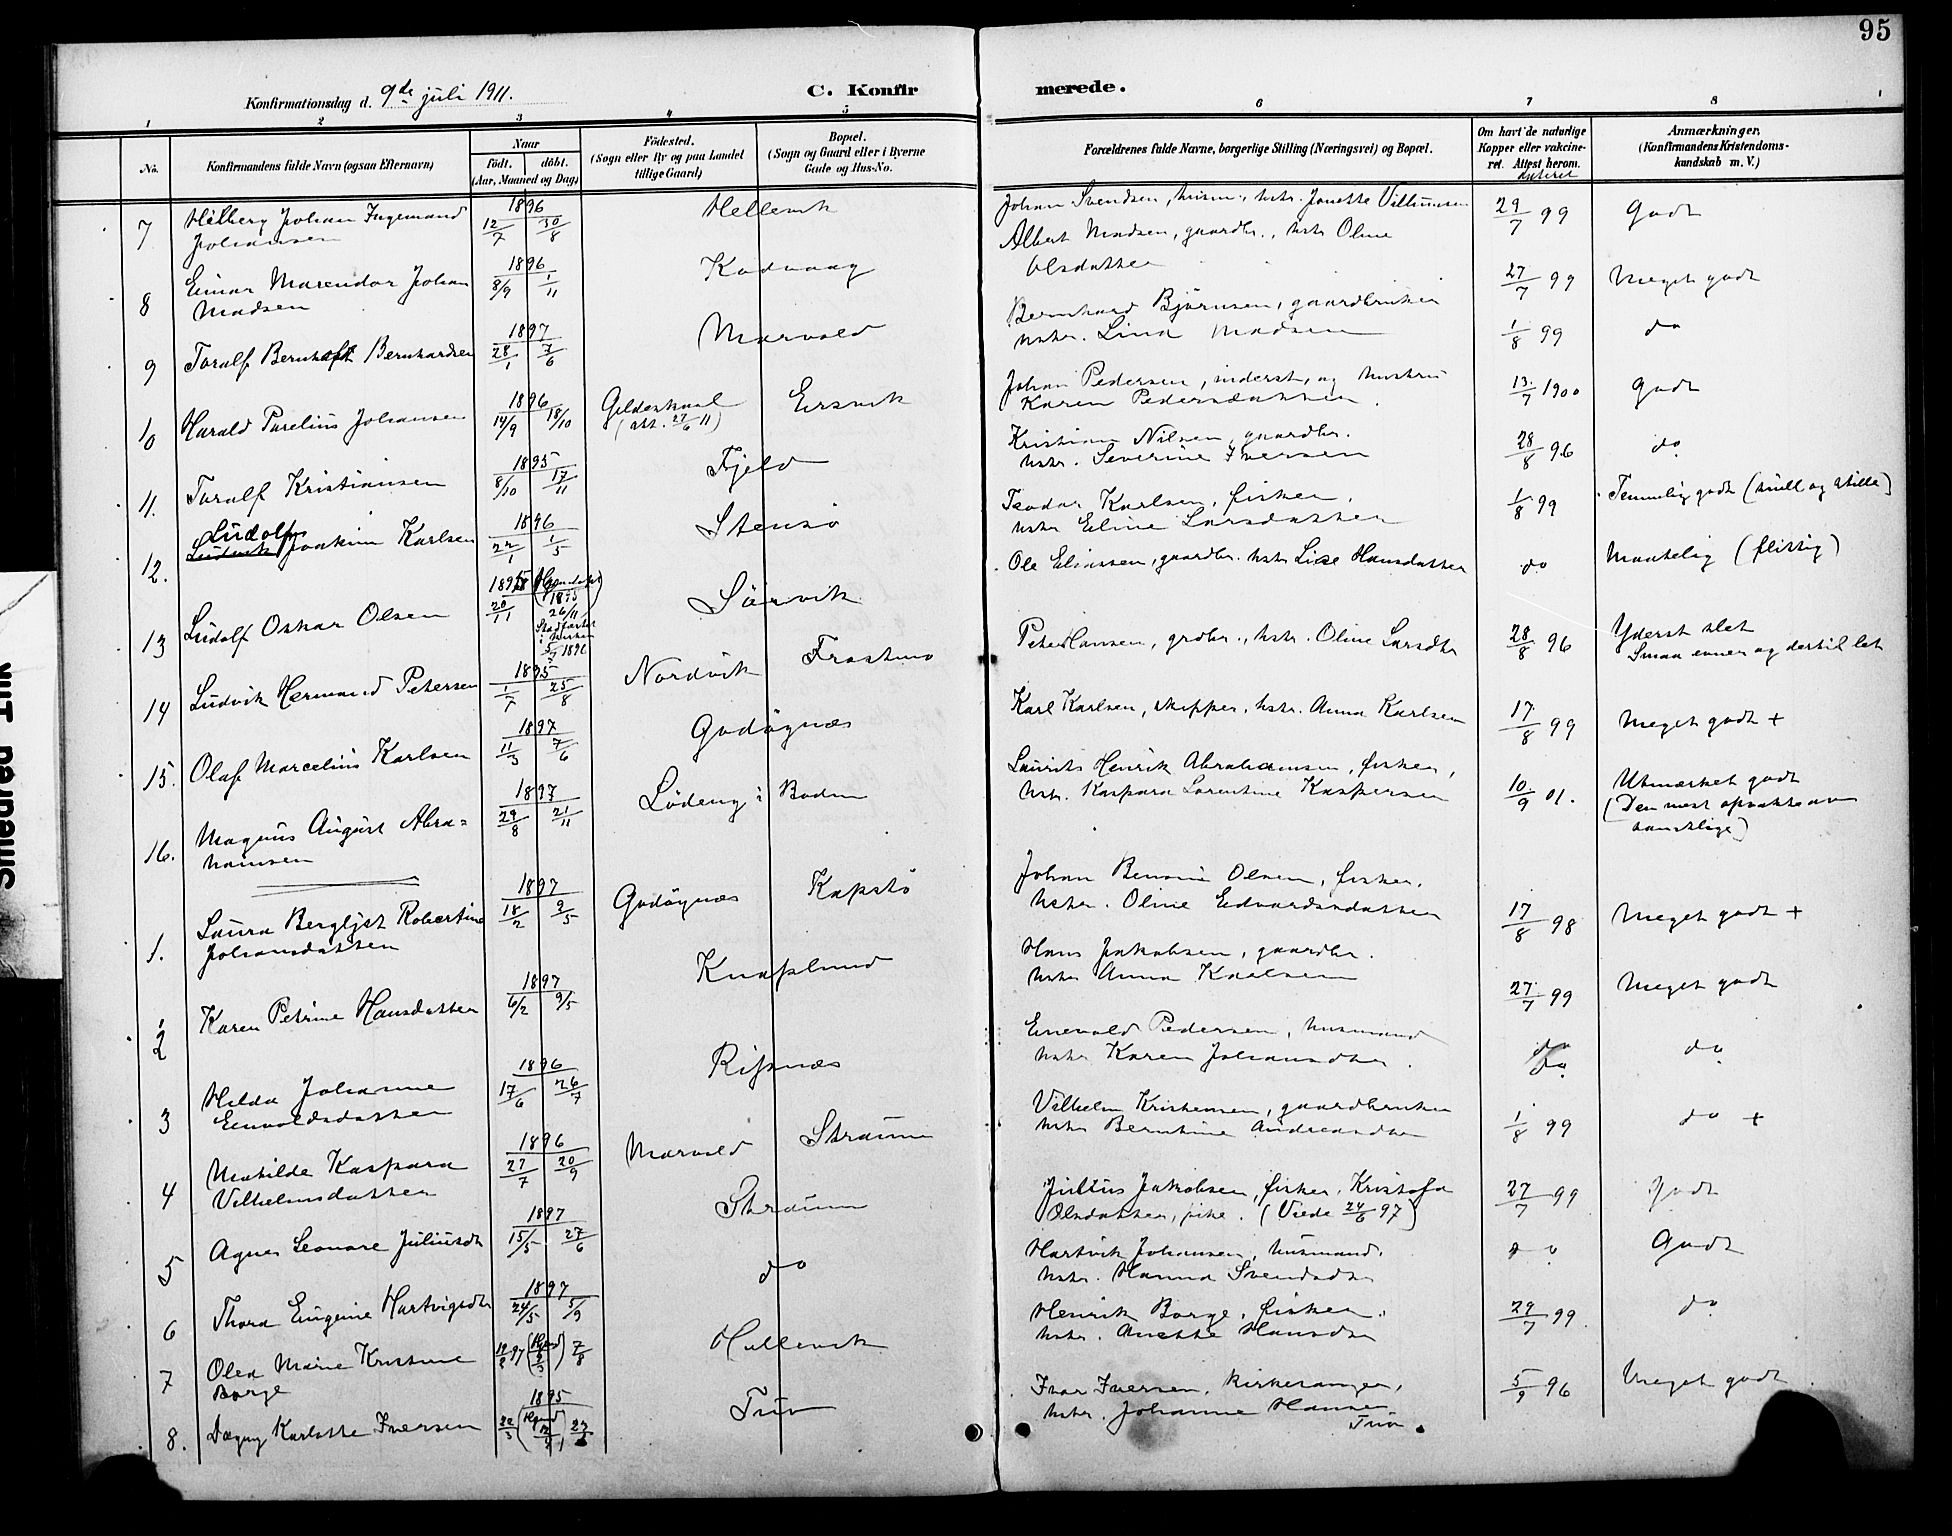 95
Konfirmationsdag d. 9de juli 1911.
C. Konfirmerede.
1 2 3 4 5 6 7 8 1
No. Konfirmandens fulde Navn (ogsaa Efternavn) Naar født. døbt. (Aar, Maaned og Dag) Fødested. (Sogn eller By og paa Landet tillige Gaard) Bopæl. (Sogn og Gaard eller i Byerne Gade og Hus-No. Forældrenes fulde Navne, borgerlige Stilling (Næringsvei) og Bopæl. Om havt de naturlige Kopper eller vakcineret. Attest herom. dateret Anmærkninger. (Konfirmandens Kristendomskundskab m. V.)
7 Hilberg Johan Ingemand Johansen 1896 12/7 30/8 Hellevik Johan Svendsen, husm., hstr. Janette Vilhumsen 29/7 99 Godt
8 Einar Marendar Johan Madsen 1896 8/9 1/11 Kodvaag Albert Madsen, gaardbr., hstr Oline Olsdatter 27/7 99 Meget godt
9 Toralf Bernhoft Bernhardsen 1897 28/1 7/6 Marvold Bernhard Bjørnsen, gaardbruker hstr. Lina Madsen 1/8 99 do
10 Harald Parelius Johansen 1896 14/9 18/10 Gildeskaal (att. 27/6 11) Ersvik Johan Pedersen, inderst, og hustru Karen Pedersdatter. 13/7 1900 Godt
11. Toralf Kristiansen 1895 8/10 17/11 Fjeld Kristian Nilsen, gaardbr. hstr. Severine Iversen 28/8 96 do
12. Ludolf Joakim Karlsen 1896 22/1 1/5 Stensø Teodor Karlsen, fisker, hstr Eline Larsdatter 1/8 99 Temmelig godt (snill og stille)
13 Ludolf Oskar Olsen 1895 20/11 (Hjemdøbt 1895 26/11 Stadfæstet i kirken 5/7 1896 Sørvik Ole Eliassen, gaardbr. hstr Lise Hansdatter do Maatelig (flittig)
14 Ludvik Hermand Petersen 1895 1/7 25/8 Nordvik Frostmo Peter Hansen, grdbr., hstr. Oline Larsdtr 28/8 96 Yderst slet Smaa evner og dertil let
15. Olaf Marcelius Karlsen 1897 11/3 7/6 Godøynæs Karl Karlsen, skipper, hstr. Anna Karlsen 17/8 99 Meget godt +
16. Magnus August Abrahamsen 1897 29/8 21/11 Løding i Bodin Laurits Henrik Abrahamsen, fisker, hstr. Kaspara Lorentine Kaspersen 10/9 01. Utmærket godt (Den mest opvakte av samtlige)
1. Laura Bergljot Robertine Johansdatter 1897 18/2 9/5 Godøynæs Kapstø Johan Benonie Olsen, fisker. hstr. Oline Edvardsdatter 17/8 98 Meget godt +
2 Karen Petrine Hansdatter 1897 6/2 9/5 Knaplund Hans Jakobsen, gaardbr. hstr Anna Karlsen 27/7 99 Meget godt
3 Hilda Johanne Enevoldsdatter 1896 17/6 26/7 Ripnæs Enevold Pedersen, husmand hstr Karen Johansdtr. do do
4 Matilde Kaspara Vilhelmsdatter 1896 27/7 20/9 Marvold Straum Vilhelm Kristensen, gaardbruker hstr Berntine Andreasdtr 1/8 99 do +
5 Agnes Leonare Juliusdt 1897 15/5 27/6 Straum Julius Jakobsen, fisker, Kristofa Olsdatter, pike. (Viede 24/6 97) 27/7 99 Godt
6 Thora Eugenie Hartvigsdtr 1897 24/5 5/9 do Hartvik Johansen, husmand. hstr. Hanna Svendsdtr do Godt
7 Olea Marie Kristine Borge 97 7/8 Hellevik Henrik Borge, fisker, hstr. Anette Hansdtr 29/7 99. do
8. Dagny Karlotte Iversen 1895 Tuv Ivar Iversen, kirkesanger, hstr. Johanne Hansen Tuv. 5/9 96 Meget godt